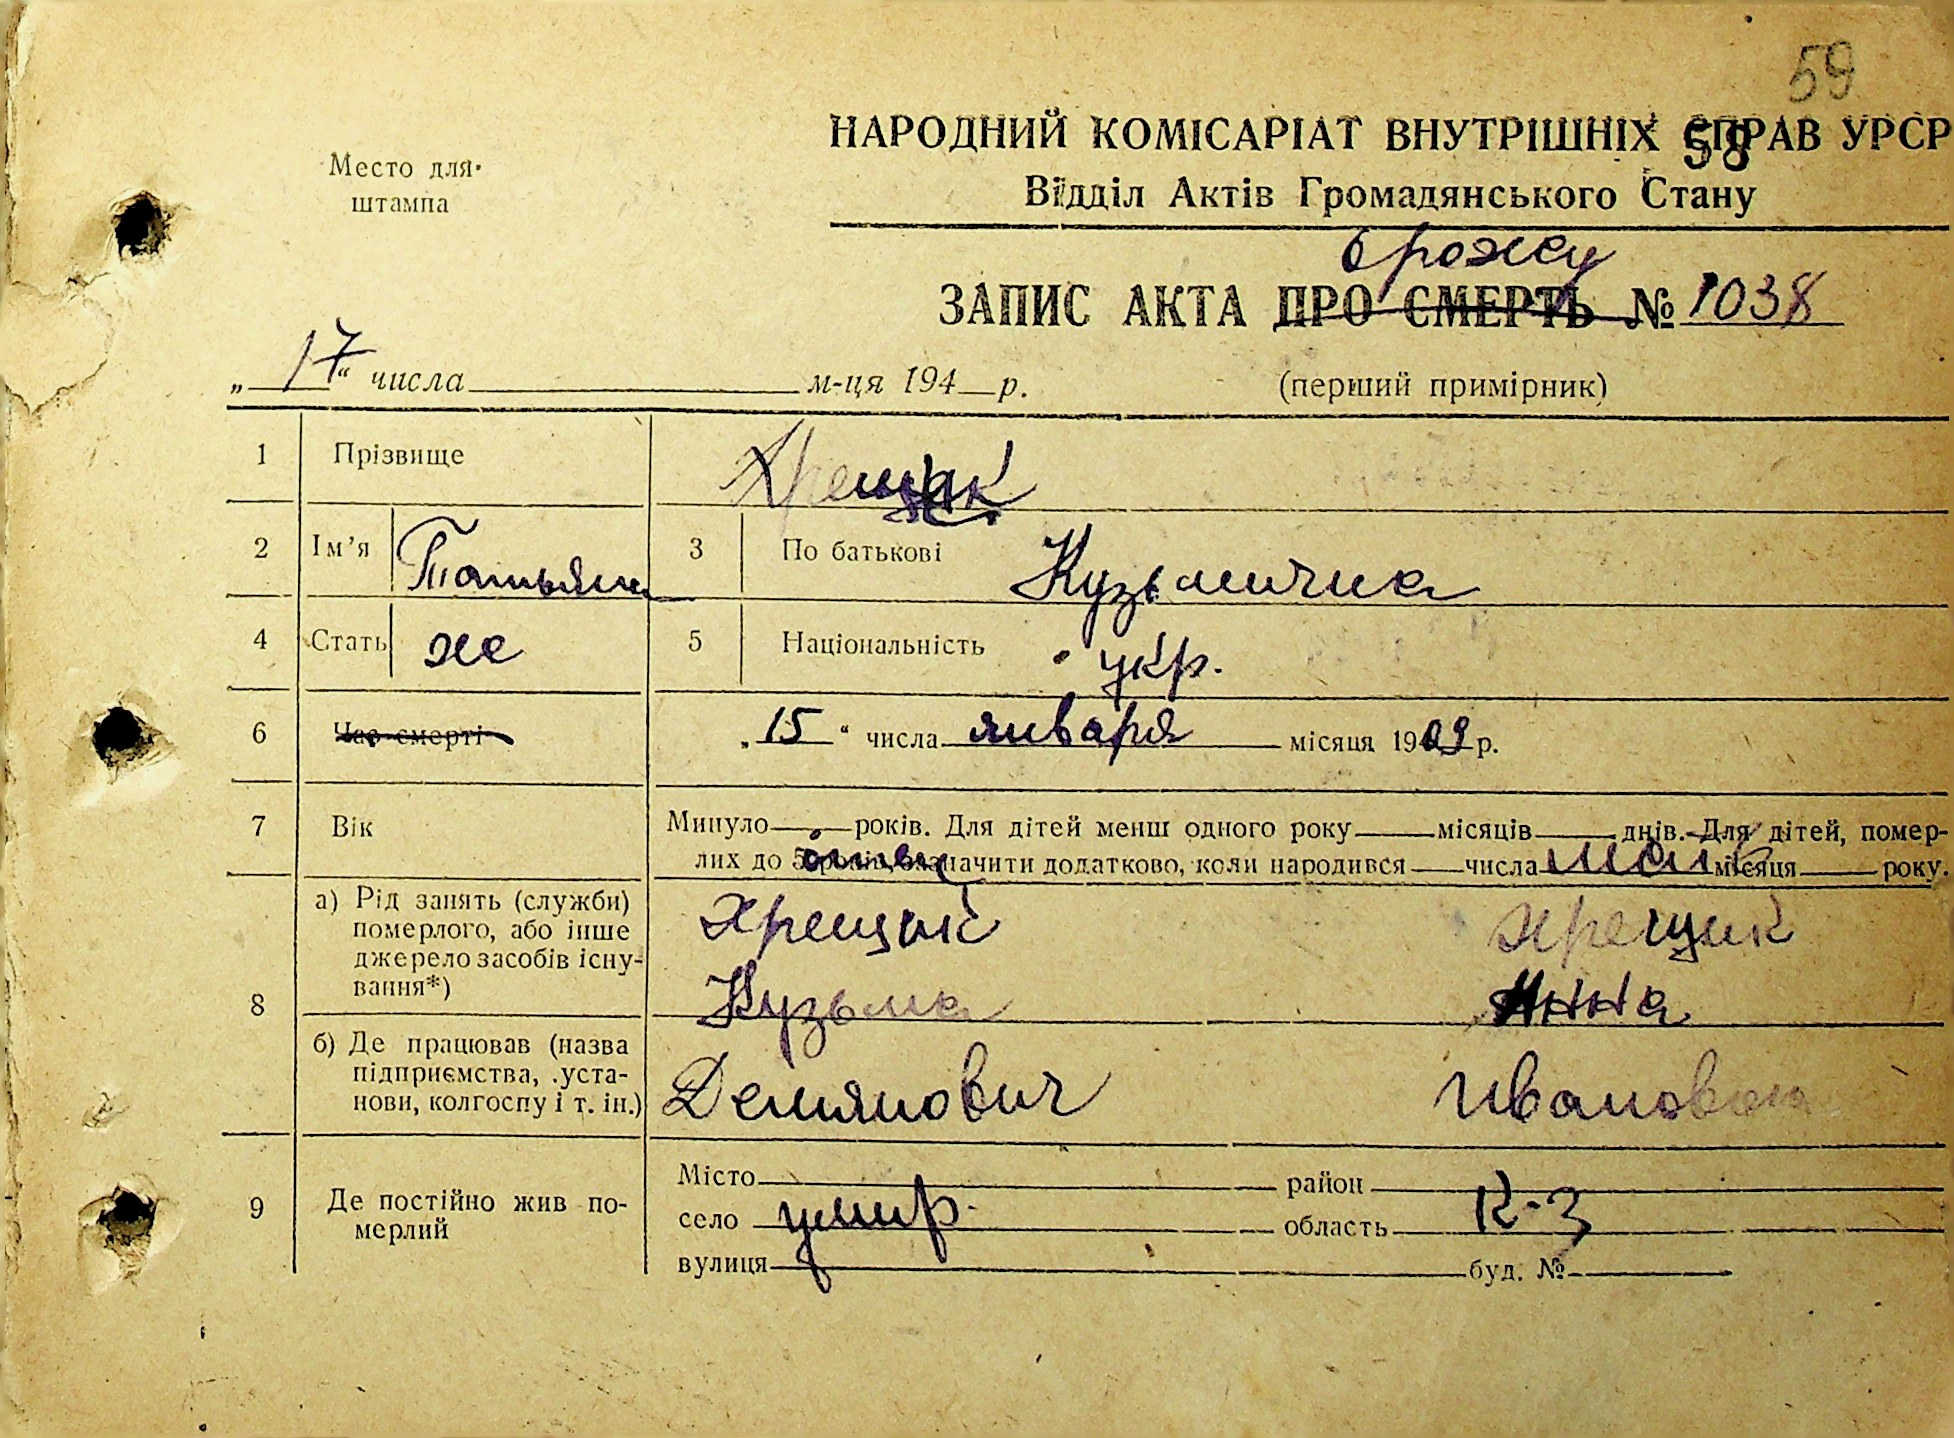 59
НАРОДНИЙ КОМІСАРІАТ ВНУТРІШНІХ СПРАВ УРСР
58
Место для штампа
Відділ Актів Громадянського Стану
о рожд
ЗАПИС АКТА ПРО СМЕРТЬ № 1038
„ 17 “ числа м-ця 194 р.
(перший примірник)
1 Прізвище Хрещик
2 Ім’я Татьяна 3 По батькові Кузьмична
4 Стать же 5 Національність укр.
6 Час смерті „ 15 “ числа января місяця 1909 р.
7 Вік Минуло років. Для дітей менш одного року місяців днів. Для дітей, помер-
лих до 5 років, зазначити додатково, коли народився числа місяця року.
отец мать
8 а) Рід занять (служби) померлого, або інше джерело засобів існу-вання*)
Хрещик Хрещик
Кузьма Анна
б) Де працював (назва підприємства, уста-нови, колгоспу і т. ін.)
Демянович Ивановна
9 Де постійно жив по-мерлий
Місто район
село умир. область К-З
вулиця буд. №